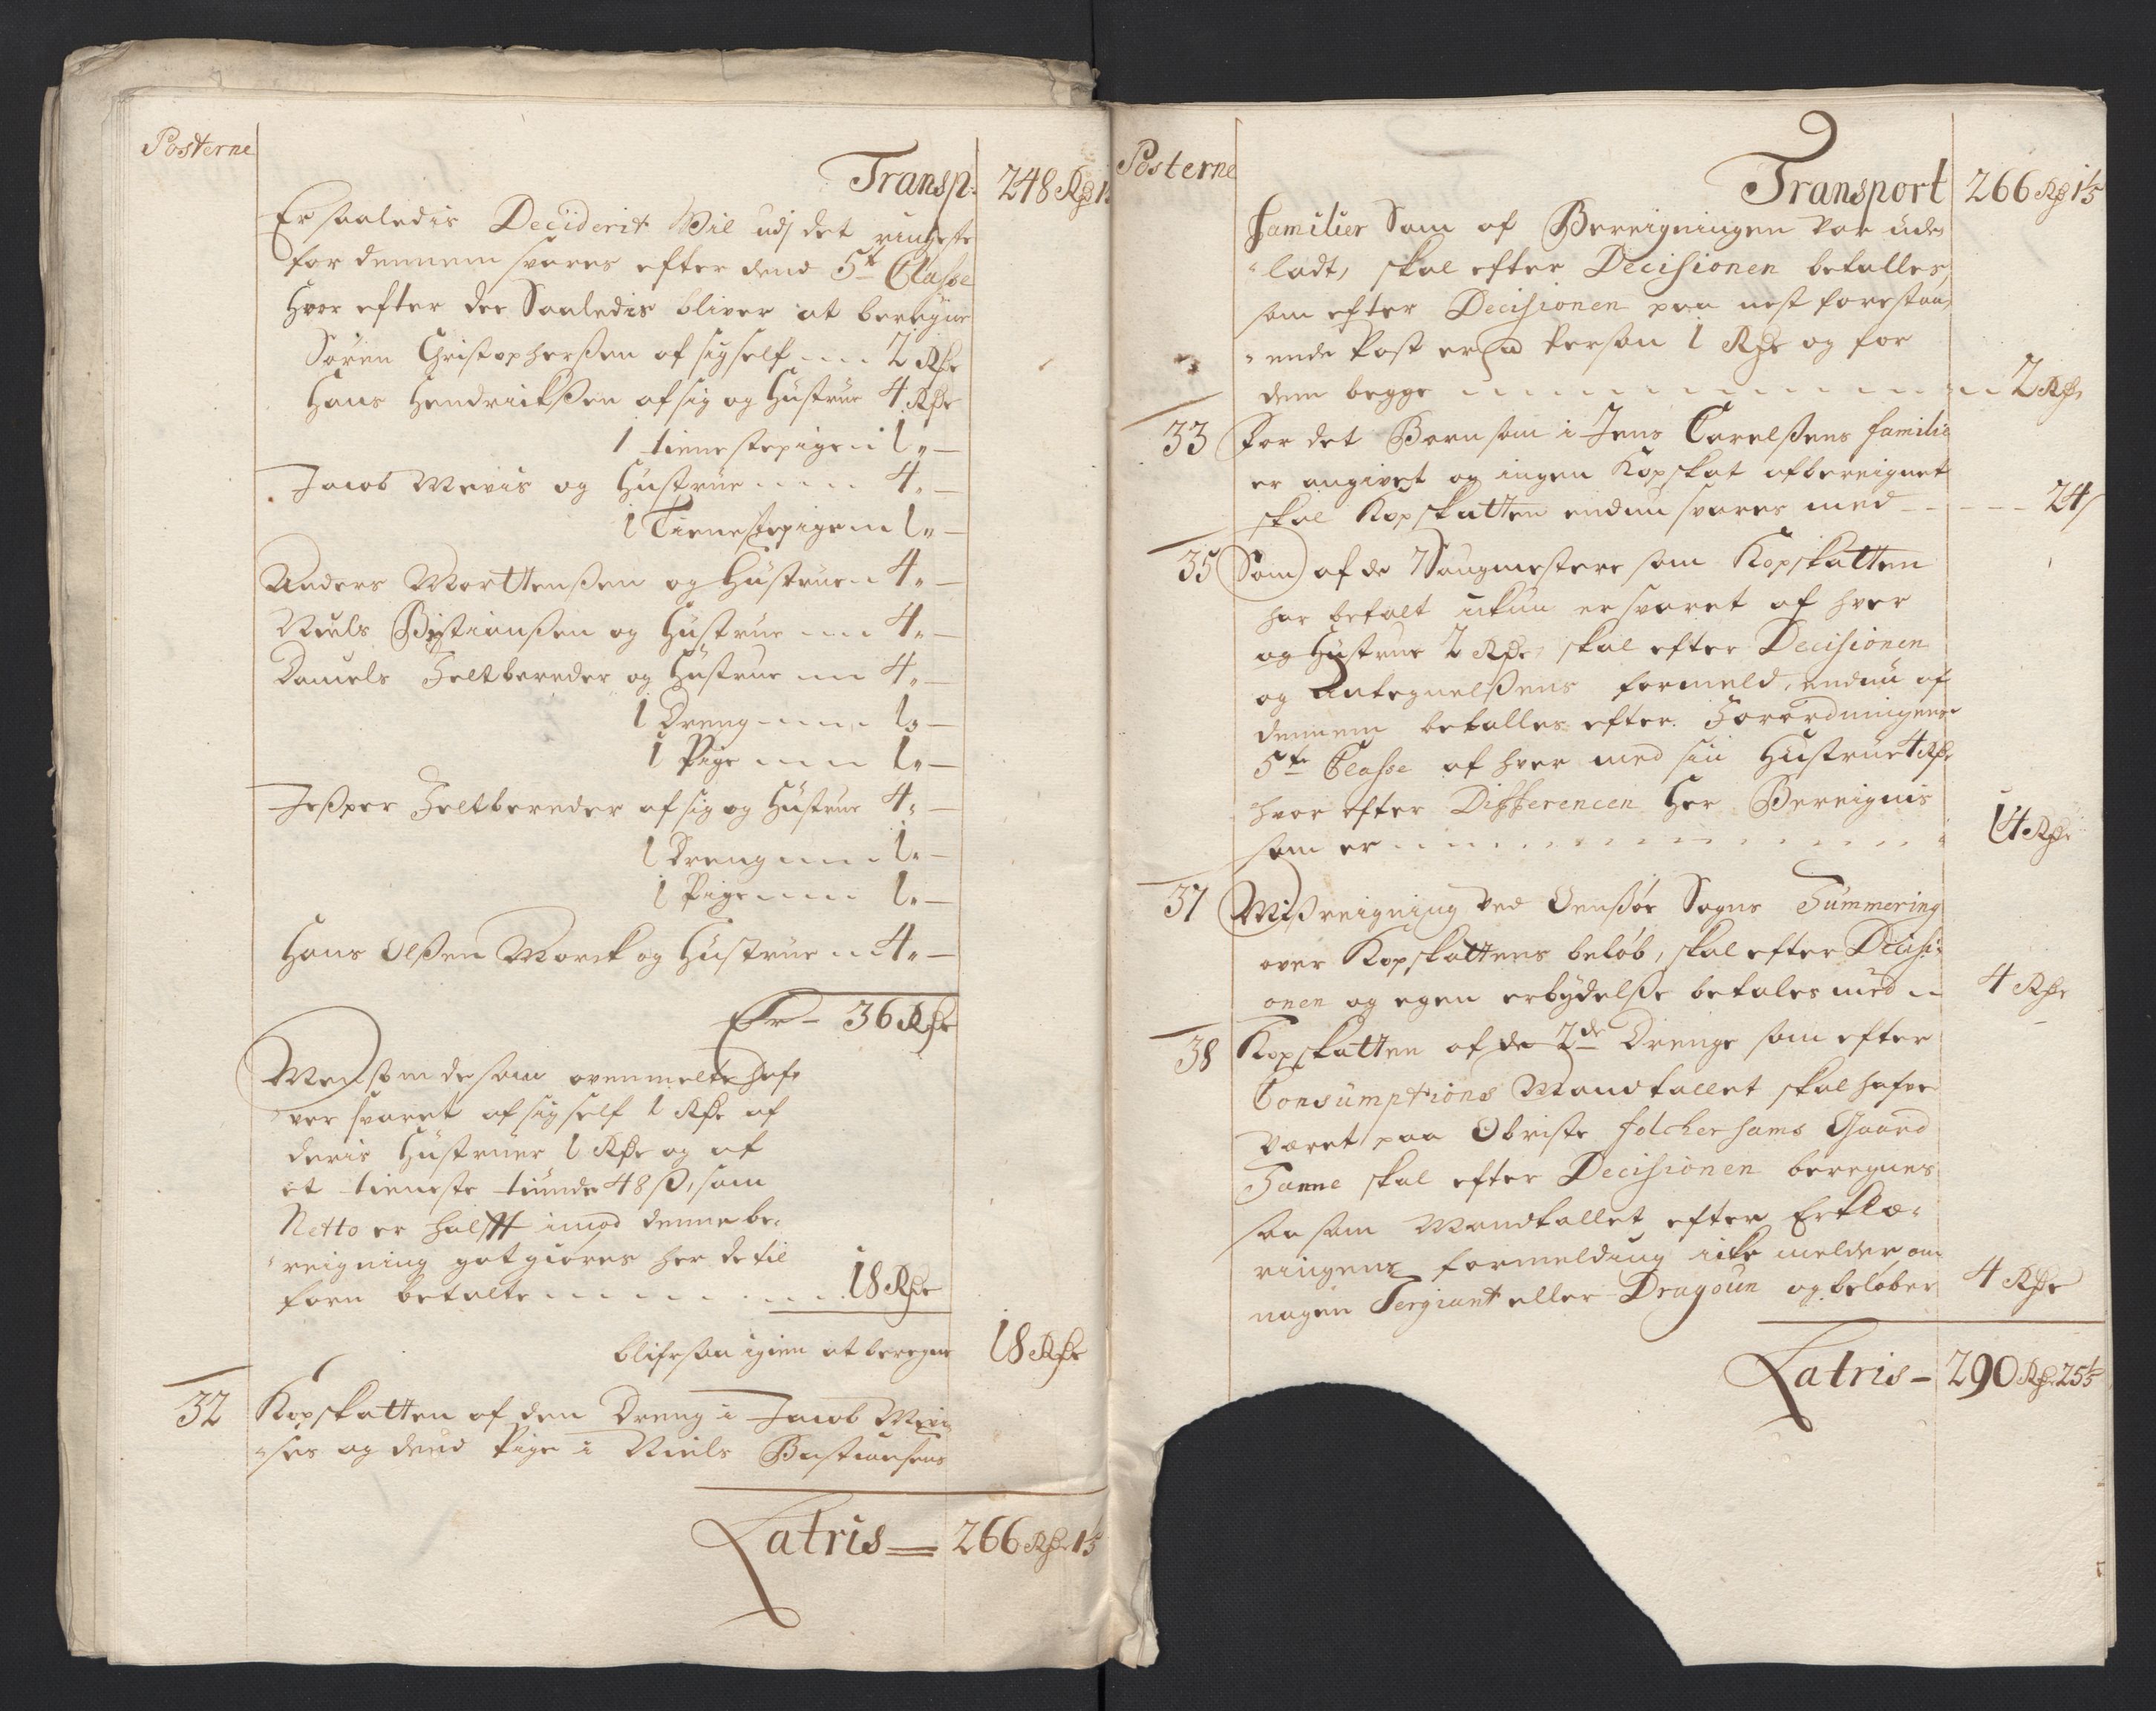 Posterne
Transp: 248 Rdr 1
Er saaledis Deciderit Vil udj det ringeste
for dennem svares efter dend 5te Classe
Hvor efter der Saaledis bliver at beregne
Søren Christophersen af sig self 2 Rdr
Hans Hendrichsen af sig og Hustrue 4 Rdr
1 tienestepige 1„ —
Jacob Mevis og Hustrue 4„ —
1 Tienestepige 1„ —
Anders Morttensen og Hustrue 4„ —
Niels Bastiansen og Hustrue 4„ —
Daniels Feltbereder og Hustrue 4„ —
1 Dreng 1„ —
1 Pige 1„ —
Jesper Feltbereder af sig og Hustrue 4„ —
1 Dreng 1„ —
1 Pige 1„ —
Hans Olsen Morck og Hustrue 4„ —
Er — 36 Rdr
Men som de som ovenmelte haf-
ver svaret af sig self 1 Rdr af
deris Hustruer 1 Rdr og af
et tieneste tiunde 48 ß, som
Netto er halfft imod denne be-
reigning gotgiøres her de til
forn betalte 18 Rdr
blifr saa igien at beregne 18 Rdr
32 Kopskatten af den Dreng i Jacob Mevi-
ses og dend Pige i Niels Bastiansens
Latris = 266 Rdr 1ß
Posterne
Transport 266 Rdr 1ß
familier Som af Bereigningen var ude-
ladt, skal efter Decisionen betalles,
som efter Decisionen paa nest forestaa-
ende Post er à Person 1 Rdr og for
dem begge 2 Rdr
33 For det Barn som i Jens Carelsens familie
er angivet og ingen Kopskat afbereignet
skal Kopskatten endnu svares med 24ß
35 Som af de 7 Saugmestere som Kopskatten
har betalt ickun er svaret af hver
og Hustrue 2 Rdr, skal efter Decisionen
og Antegnelsens formeld, endnu af
dennem betalles efter Forordningens
5te Classe af hver med sin Hustrue 4 Rdr
hvor efter Differencen Her Bereignis
som er 14 Rdr
37 Misreigning ved Onsøe Sogns Summering
over Kopskattens beløb, skal efter Decisi-
onen og egen erbydelse betales med 4 Rdr
38 Kopskatten af de 2de Drenge som efter
Consumptions Mandtallet skal hafve
været paa Obriste folckersams Gaard
Tanne skal efter Decisionen beregnes
saa som Mandtallet efter Erklæ-
ringens formelding icke melder om
nogen Sergiant eller Dragoun og beløber 4 Rdr
Latris — 290 Rdr 25ß